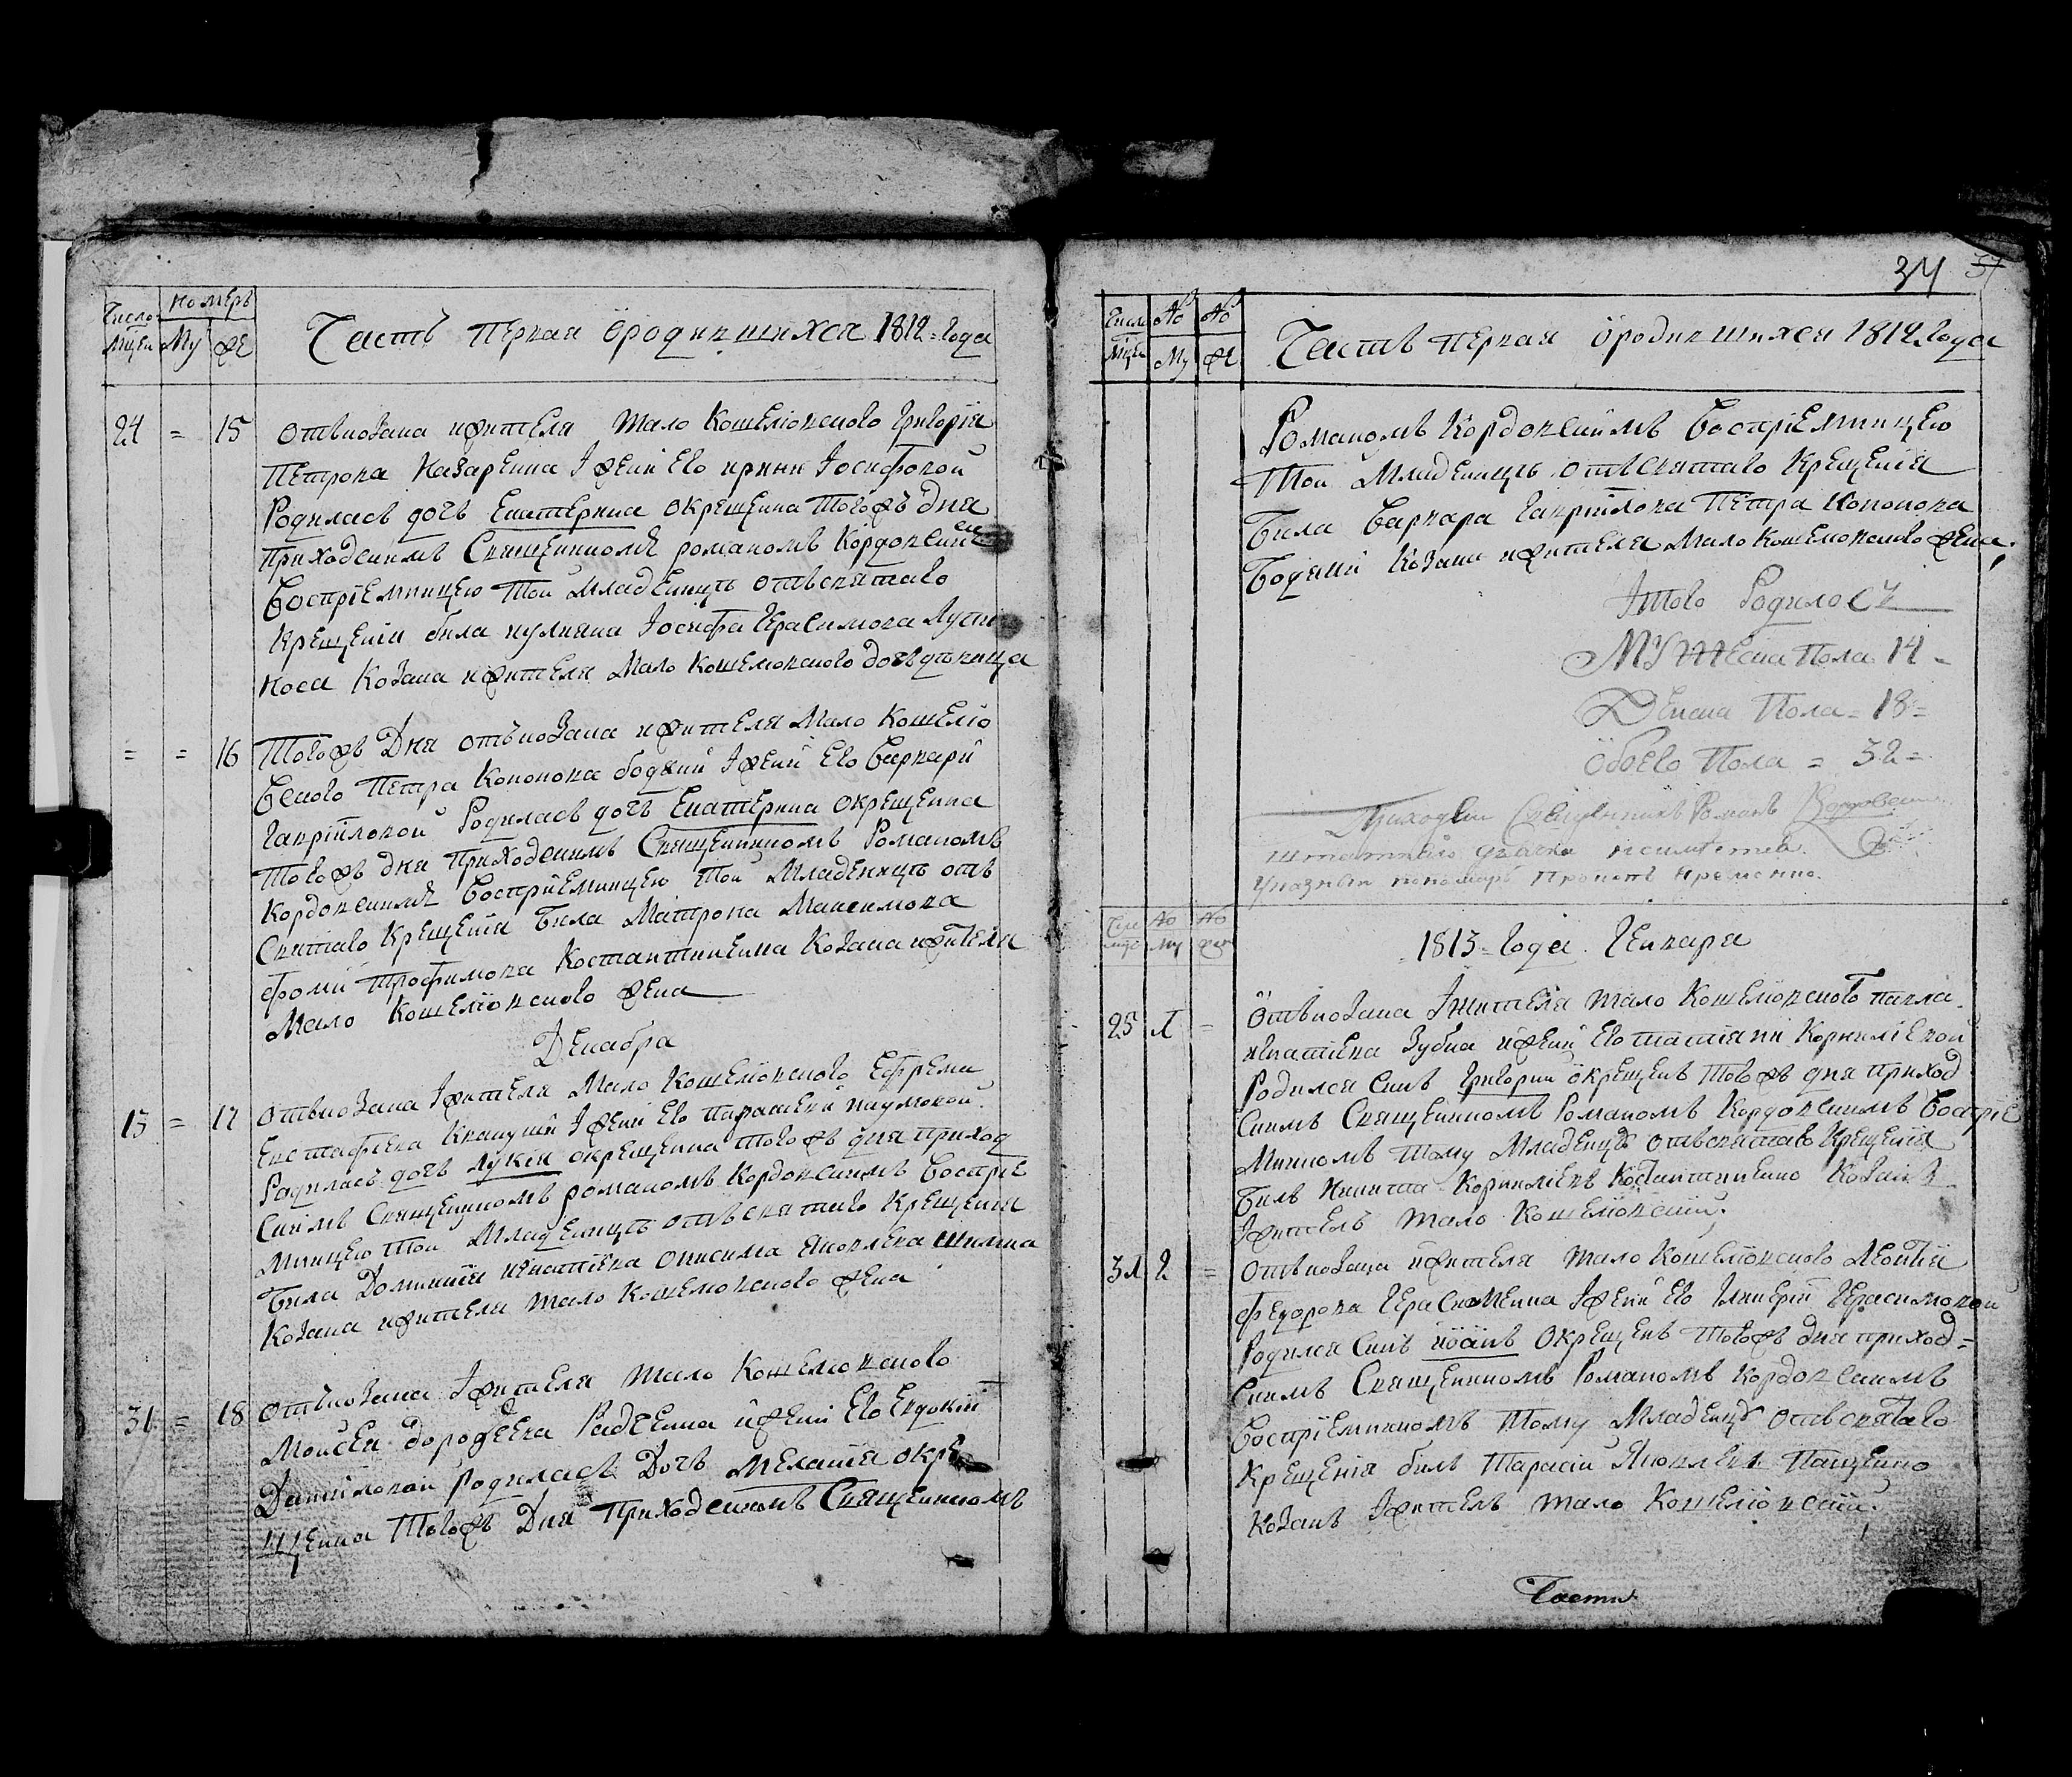 Число номеръ
Мцеи Му же
Часть первая о родившихся 1812 = Года
24 = 15 отъ козака и жителя Мало Кошелювского Григорїя
Петрова Назаренка І жени Его ирини Іосифовой
Родилась дочь Екатерина окрещенна Того жъ Дня
Приходскимъ Священникомъ романомъ Кордовским
Воспрїемницею Той Младеницѣ отъ святаго
Крещенїя била иулияна Іосифа Герасимова
носа Козака и жителя Мало Кошелювского дочь дѣвица
= = 16 Того жъ Дня отъ козака и жителя Мало Кошелю
вского Петра Кононова бодний І жени Его Варвари
Гаврїиловой Родилась дочь Екатерина окрещенна
Того жъ дня Приходскимъ Священникомъ Романомъ
Кордовскимъ Воспрїемницею Той Младеницѣ отъ
Святаго Крещенїя Била Матрона Максимова
Фоми Трофимова Костантиненка Козака и жителя
Мало Кошелювского жена
Декабра
13 = 17 отъ козака І жителя Мало Кошелювского Ефрема
Евстафїева І жени Его Парасževi Наумовой
Родилась дочь Лукїя окрещенна того жъ дня приход
скимъ Священникомъ романомъ Кордовскимъ Воспрїе
мницею Той Младеницѣ отъ святаго Крещенїя
Била Домникїя игнатїева онисима Яковлева
Козака и жителя Мало Кошелювского жена
31 = 18 отъ козака І жителя Мало Кошелювского
Моисея дорофеева Радченка и жени Его Евдокїи
Данїиловой Родилась Дочь Мелания окре
щенна Того жъ Дня Приходскимъ Священникомъ
34 37
Числ № №
Мцеи Му же
Часть первая о родившихся 1812 Года
Романомъ Кордовскимъ Воспрїемницею
Той Младеницѣ отъ Святаго Крещенїя
Била Варвара Гаврїилова Петра Кононова
Бодний Козака и жителя Мало Кошелювского жена
Ітого Родилось
Мужеска Пола 14 =
Женска Пола = 18 =
Обоего Пола = 32 =
Приходскїй Священникъ Романъ Кордовский
штатного дячка неимѣется
Указный пономарь
Числ № №
мце му же
1813 = Года Генвара
25 1 = отъ козака Іжителя Мало Кошелювского павла
игнатїева Зубка и жени Его татїяни Корнилїевой
Родился Синъ Григорий окрещенъ того жъ дня приход
скимъ Священникомъ Романомъ Кордовскимъ Воспрїе
мникомъ тому Младенцу отъ святаго Крещенїя
Билъ Никита Корнилїевъ Костантиненко Козакъ
Іжитель Мало Кошелювский
31 2 = отъ козака и жителя Мало Кошелювского Леонтїя
федорова Герасименка І жени Его Гликерїи Герасимовой
Родился Синъ иоанъ окрещенъ того жъ дня приход=
скимъ Священникомъ Романомъ Кордовскимъ
Воспрїемникомъ Тому Младенцу отъ святаго
Крещенїя билъ Тарасїй Яковлевъ Пащенко
Козакъ Іжитель Мало Кошелювский
Части